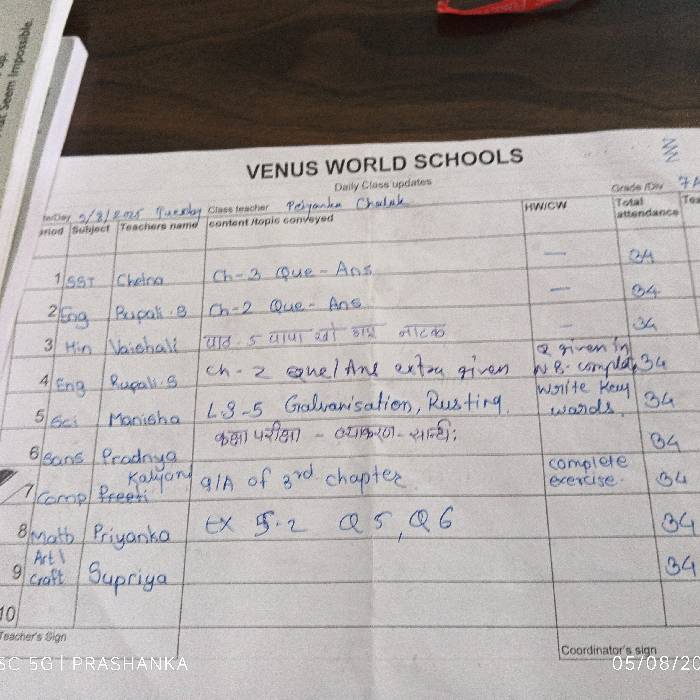 at Seem Impossible.
VENUS WORLD SCHOOLS
Daily Class updates
Grade /Div 7A
te/Day 5/8/2025 Tuesday Class teacher Priyanka
riod Subject Teachers name content /topic conveyed HW/CW Total attendance Tea
1 SST Chetna Ch-3 Que - Ans. — 34
2 Eng Rupali.S Ch-2 Que - Ans. — 34
3 Hin Vaishali पाठ . 5 नाटक — 34
4 Eng Rupali.S Ch - 2 Que/Ans extra given Q given in N.B. complete 34
5 Sci Manisha L.S-5 Galvanisation, Rusting. write key words. 34
6 Sans Pradnya कक्षा परीक्षा - व्याकरण - सन्धि: 34
7 Comp Preeti Kalyani Q/A of 3rd chapter complete exercise. 34
8 Math Priyanka Ex 5.2 Q5, Q6 34
9 Art\ Craft Supriya 34
10
Teacher's Sign
Coordinator's sign
SC 5G | PRASHANKA
05/08/20